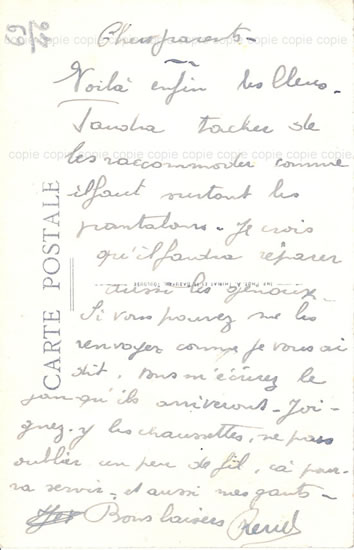 69
46
Chers parents -
Voilà enfin les bleus.
Faudra tacher de
les raccommoder comme
il faut surtout les
pantalons. Je crois
qu'il faudra réparer
aussi les genoux.
Si vous pouvez me les
renvoyez comme je vous ai
dit. Vous m'écrirez le
jour qu'ils arriveront. Joi-
gnez-y les chaussettes, ne pas
oublier un peu de fil, çà pour-
ra servir. et aussi mes gants -
Bons baisers René
CARTE POSTALE
copie copie copie copie copie copie copie